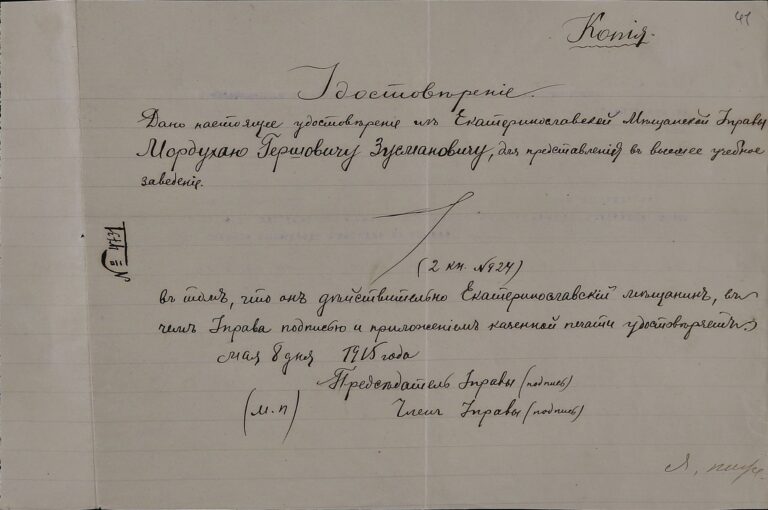 41
Копія.
Удостовѣреніе.
Дано настоящее удостовѣрение изъ Екатеринославской Мѣщанской Управы
Мордухаю Гершовичу Зусмановичу, для представленія въ высшее учебное
заведеніе.
№ 4731
(2 кн. № 924)
въ томъ, что онъ дѣйствительно Екатеринославскій мѣщанинъ, въ
чемъ Управа подписью и приложеніемъ казенной печати удостовѣряетъ.
мая 8 дня 1915 года
Предсѣдатель Управы (подпись)
(М.п) Членъ Управы (подпись)